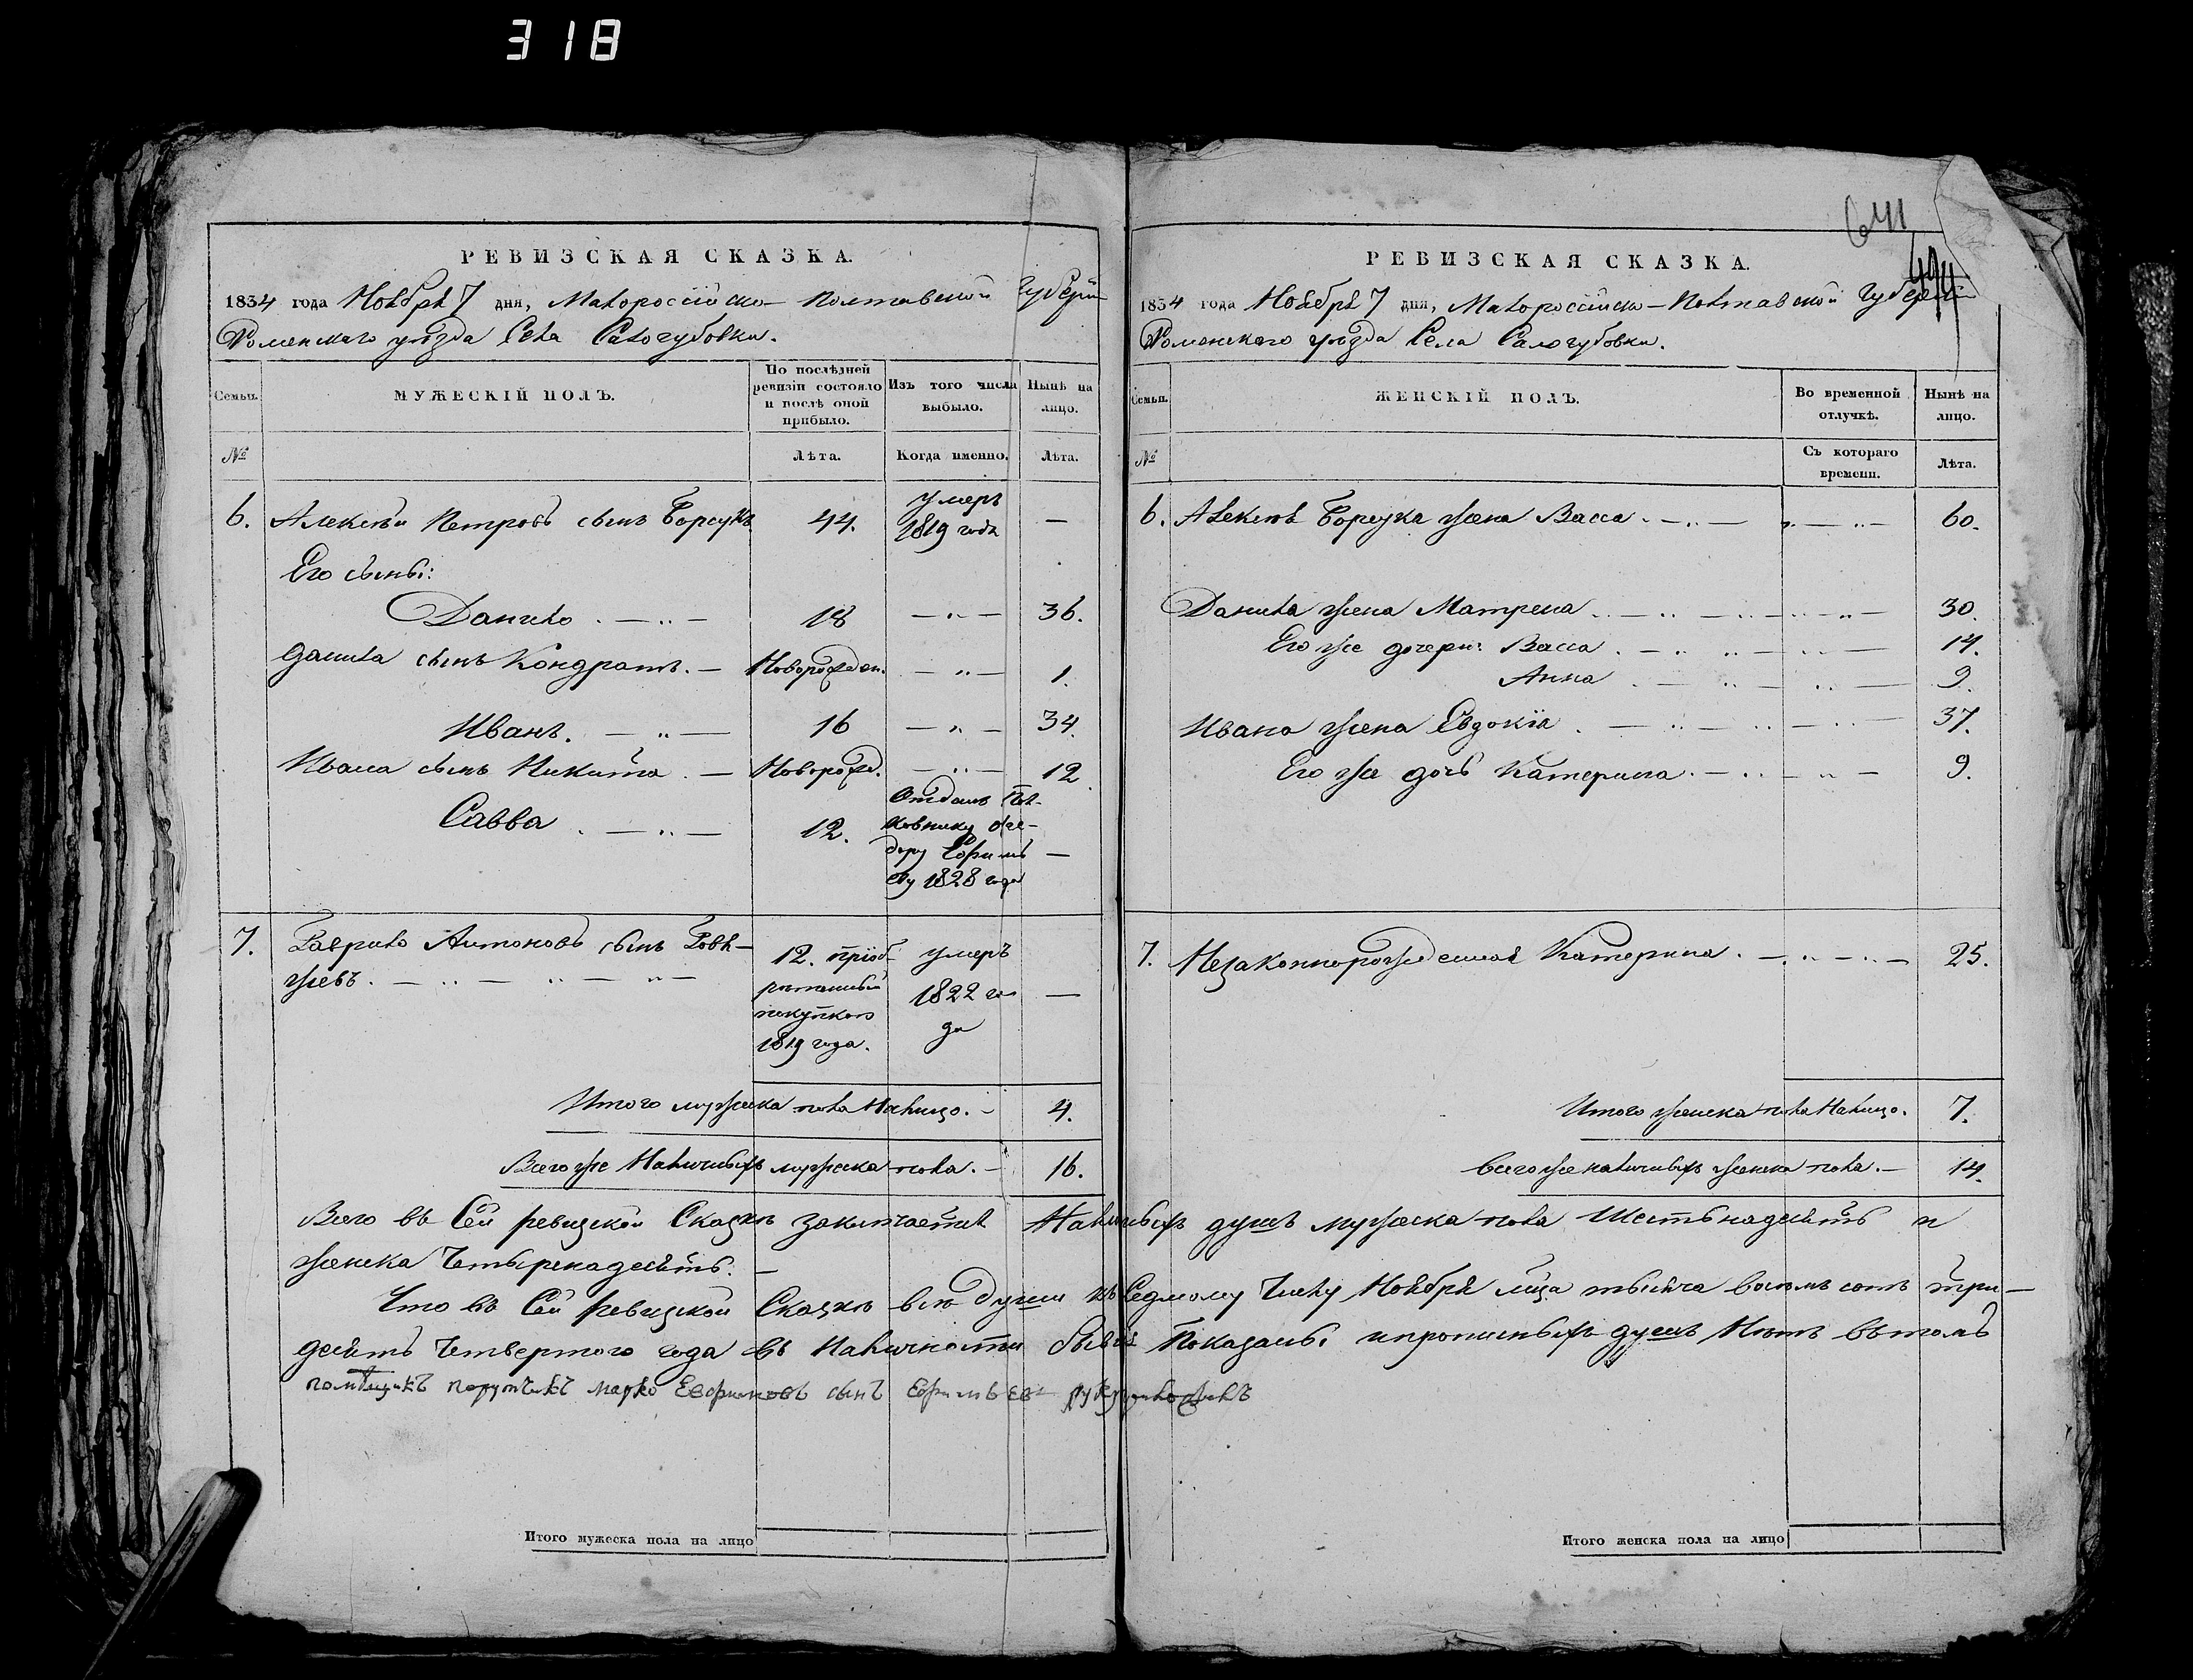 318
641
РЕВИЗСКАЯ СКАЗКА.
1834 года Ноября 7 дня, Малороссійско-Полтавской Губерніи
Роменскаго уѣзда Села Салогубовки.
Семьи.
МУЖЕСКІЙ ПОЛЪ.
По послѣдней ревизіи состояло и послѣ оной прибыло.
Изъ того числа выбыло.
Нынѣ на лицо.
№
Лѣта.
Когда именно.
Лѣта.
6. Алексѣй Петровъ сынъ Борсукъ 44. умеръ 1819 года —
Его сыны:
Данило 18 — 36.
Данила сынъ Кондратъ. — Новорожден. — 1.
Иванъ. — 16 — 34.
Ивана сынъ Никита. — Новорожд. — 12
Савва — 12. Отданъ Пол-
ковнику Фе-
дору Ефимь
еву 1828 года —
7. Гаврило Антоновъ сынъ
жевъ. 12. пріоб-
рѣтенный
покупкою
1819 года.
умеръ
1822 го-
да —
Итого мужеска пола Налицо. — 4.
Всего же Наличныхъ мужеска пола. — 16.
РЕВИЗСКАЯ СКАЗКА.
1834 года Ноября 7 дня, Малороссійско-Полтавской Губерніи
Роменскаго уѣзда Села Салогубовки.
Семьи.
ЖЕНСКІЙ ПОЛЪ.
Во временной отлучкѣ.
Нынѣ на лицо.
№
Съ котораго времени.
Лѣта.
6. Алексѣя Борсука жена Васса. — 60.
Данила жена Матрена — 30.
Его же дочери: Васса — 14.
Анна — 9.
Ивана жена Евдокія — 37.
Его же дочь Катерина. — 9.
7. Незаконнорожденная Катерина. — 25.
Итого женска пола Налицо. 7.
Всего же наличныхъ женска пола. — 14.
Всего въ Сей ревизской Сказкѣ заключается Наличныхъ душъ мужеска пола Шестьнадцять и
женска Четырнадцять. —
Что въ Сей Ревизской Сказкѣ всѣ души къ Седмому Числу Ноября мѣца тысяча восемъ сотъ три-
дцять Четвертого года въ Наличности бывыя Показаны и прописныхъ душъ Нѣтъ въ томъ
помѣщикъ порутчикъ марко сынъ Ефимьевъ
Итого мужеска пола на лицо
Итого женска пола на лицо